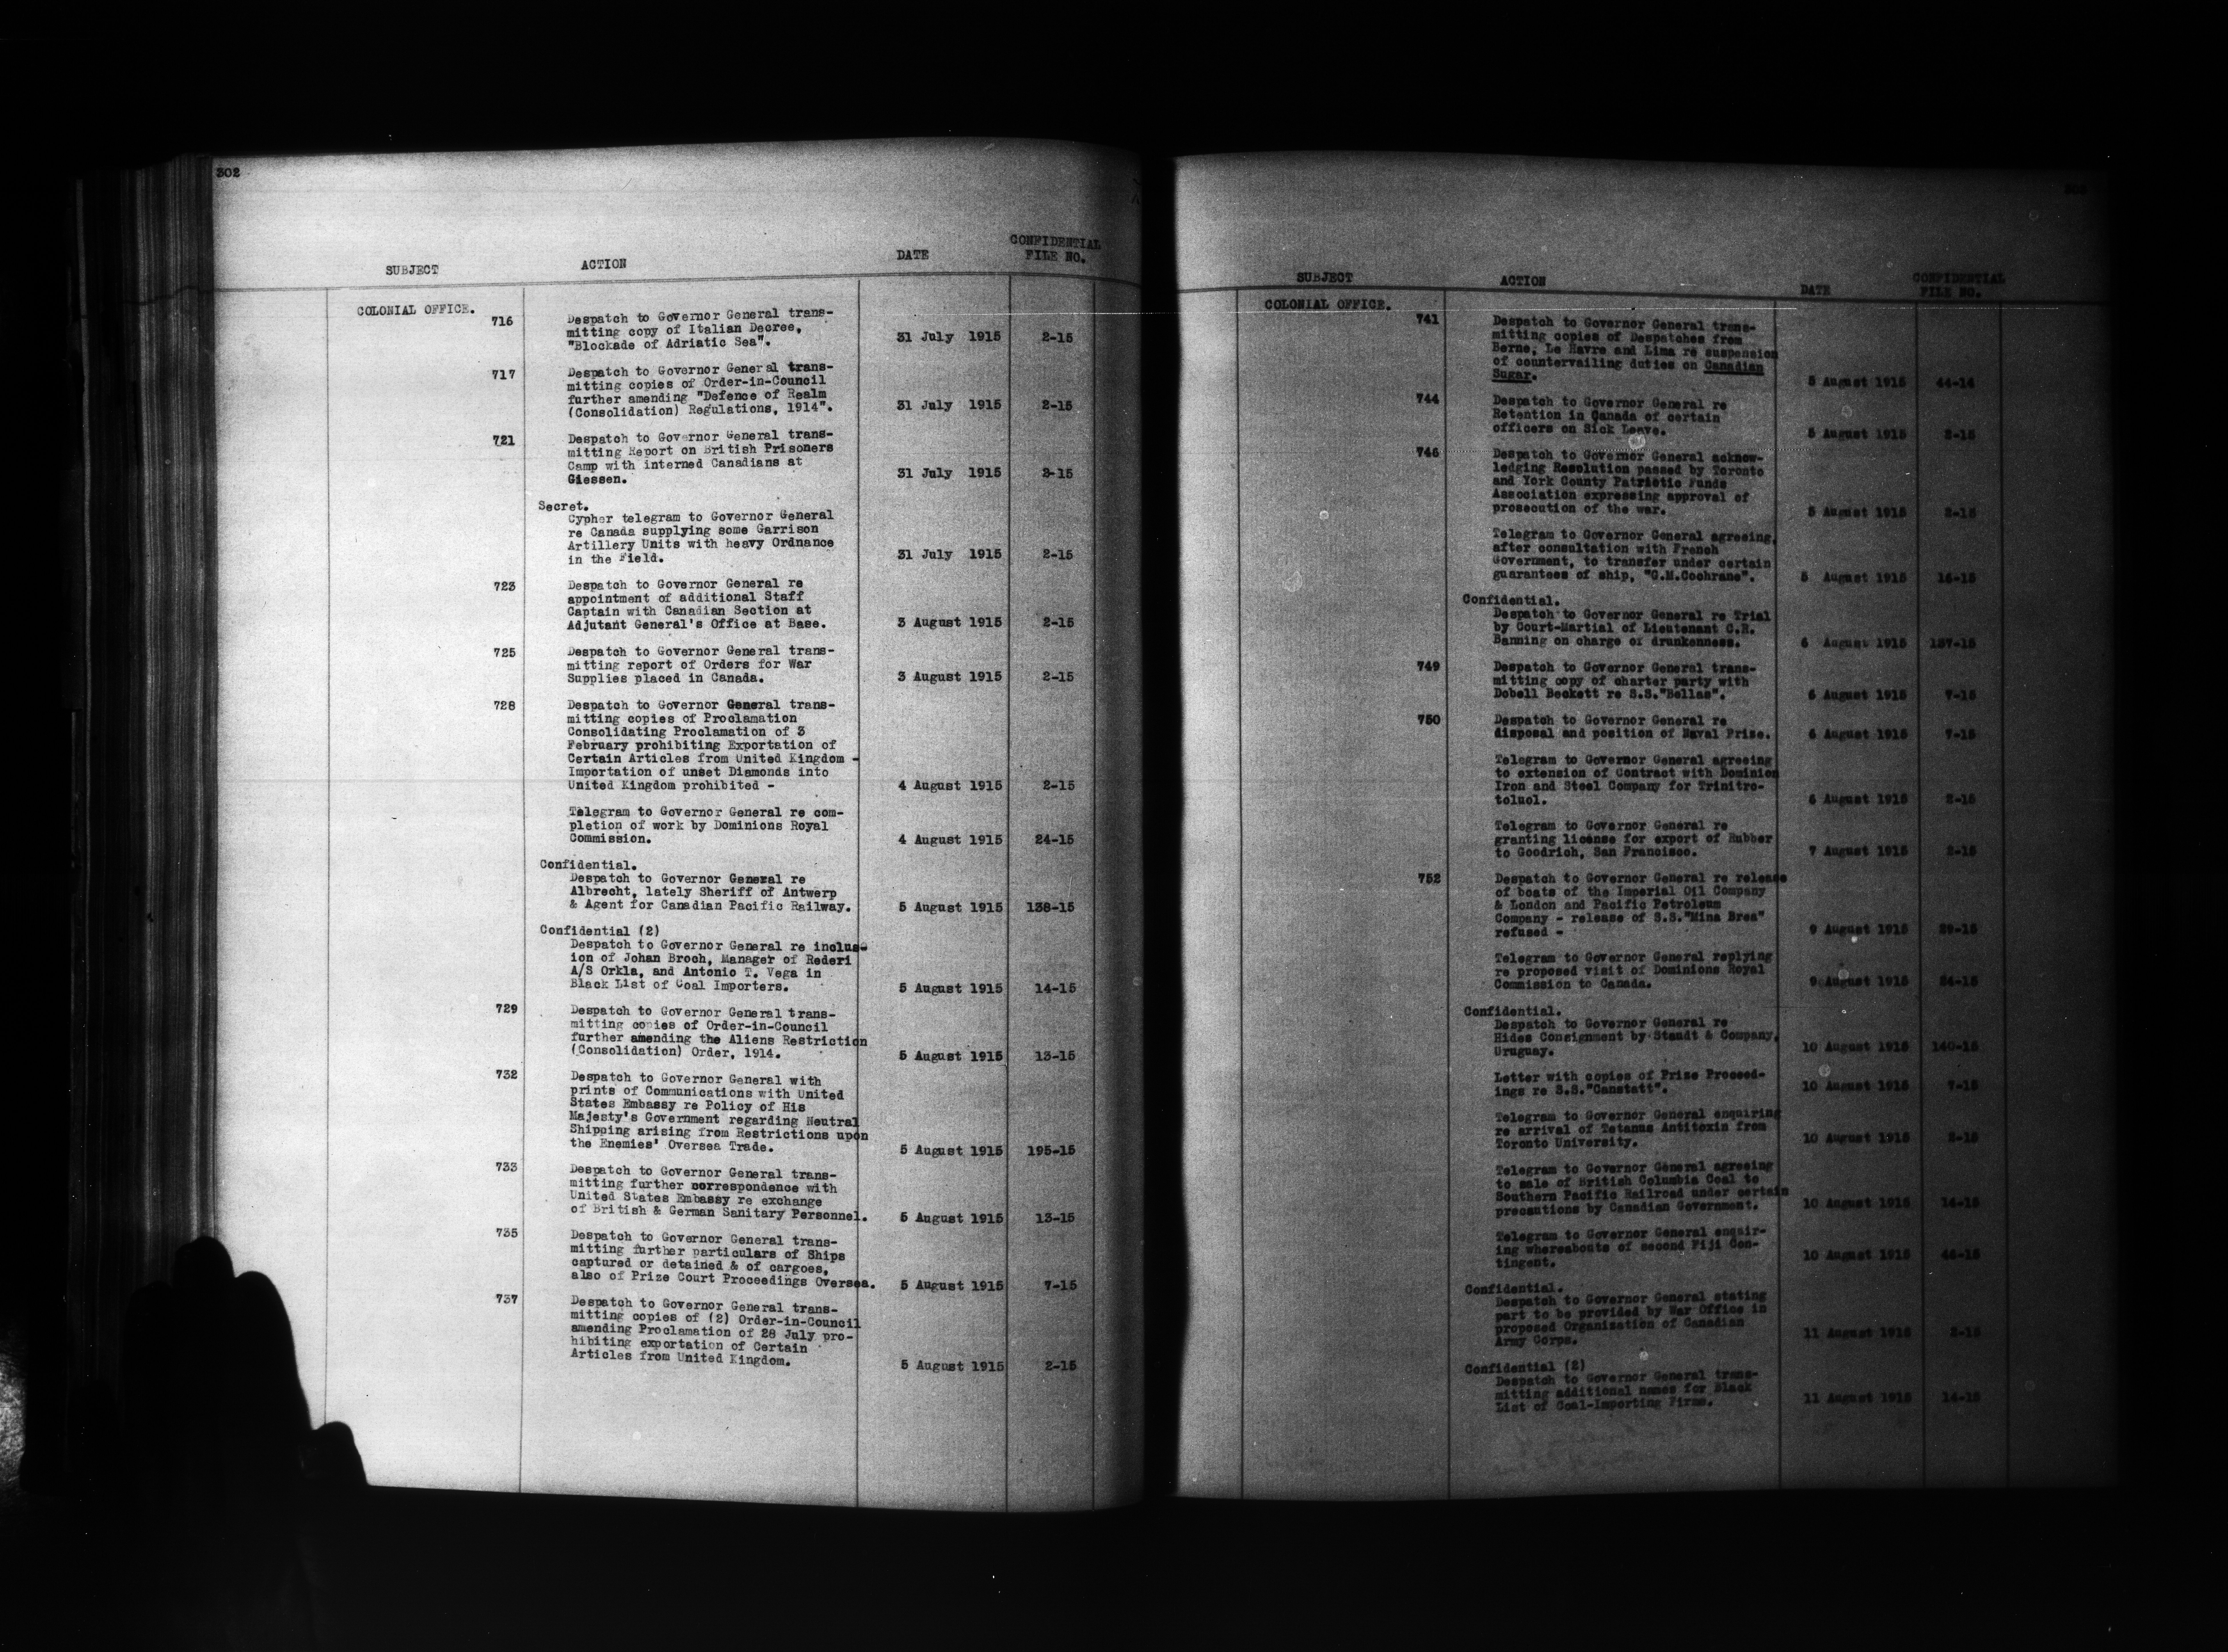 302
SUBJECT ACTION DATE CONFIDENTIAL FILE NO.
COLONIAL OFFICE.
716 Despatch to Governor General trans-
mitting copy of Italian Decree,
"Blockade of Adriatic Sea". 31 July 1915 2-15
717 Despatch to Governor General trans-
mitting copies of Order-in-Council
further amending "Defence of Realm
(Consolidation) Regulations, 1914". 31 July 1915 2-15
721 Despatch to Governor General trans-
mitting Report on British Prisoners
Camp with interned Canadians at
Giessen. 31 July 1915 2-15
Secret.
Cypher telegram to Governor General
re Canada supplying some Garrison
Artillery Units with heavy Ordnance
in the Field. 31 July 1915 2-15
723 Despatch to Governor General re
appointment of additional Staff
Captain with Canadian Section at
Adjutant General's Office at Base. 3 August 1915 2-15
725 Despatch to Governor General trans-
mitting report of Orders for War
Supplies placed in Canada. 3 August 1915 2-15
728 Despatch to Governor General trans-
mitting copies of Proclamation
Consolidating Proclamation of 3
February prohibiting Exportation of
Certain Articles from United Kingdom -
Importation of unset Diamonds into
United Kingdom prohibited - 4 August 1915 2-15
Telegram to Governor General re com-
pletion of work by Dominions Royal
Commission. 4 August 1915 24-15
Confidential.
Despatch to Governor General re
Albrecht, lately Sheriff of Antwerp
& Agent for Canadian Pacific Railway. 5 August 1915 138-15
Confidential (2)
Despatch to Governor General re inclus-
ion of Johan Broch, Manager of Rederi
A/S Orkla, and Antonio T. Vega in
Black List of Coal Importers. 5 August 1915 14-15
729 Despatch to Governor General trans-
mitting copies of Order-in-Council
further amending the Aliens Restriction
(Consolidation) Order, 1914. 5 August 1915 13-15
732 Despatch to Governor General with
prints of Communications with United
States Embassy re Policy of His
Majesty's Government regarding Neutral
Shipping arising from Restrictions upon
the Enemies' Oversea Trade. 5 August 1915 195-15
733 Despatch to Governor General trans-
mitting further correspondence with
United States Embassy re exchange
of British & German Sanitary Personnel. 5 August 1915 13-15
735 Despatch to Governor General trans-
mitting further particulars of Ships
captured or detained & of cargoes,
also of Prize Court Proceedings Oversea. 5 August 1915 7-15
737 Despatch to Governor General trans-
mitting copies of (2) Order-in-Council
amending Proclamation of 28 July pro-
hibiting exportation of Certain
Articles from United Kingdom. 5 August 1915 2-15
SUBJECT ACTION DATE CONFIDENTIAL FILE NO.
COLONIAL OFFICE.
741 Despatch to Governor General trans-
mitting copies of Despatches from
Berne, Le Havre and Lima re suspension
of countervailing duties on Canadian
Sugar. 5 August 1915 44-14
744 Despatch to Governor General re
Retention in Canada of certain
officers on Sick Leave. 5 August 1915 2-15
746 Despatch to Governor General acknow-
ledging Resolution passed by Toronto
and York County Patriotic Funds
Association expressing approval of
prosecution of the war. 5 August 1915 2-15
Telegram to Governor General agreeing,
after consultation with French
Government, to transfer under certain
guarantees of ship, "C.M.Cochrane". 5 August 1915 16-15
Confidential.
Despatch to Governor General re Trial
by Court-Martial of Lieutenant C.R.
Banning on charge of drunkenness. 6 August 1915 137-15
749 Despatch to Governor General trans-
mitting copy of charter party with
Dobell Beckett re S.S."Bellas". 6 August 1915 7-15
750 Despatch to Governor General re
disposal and position of Naval Prize. 6 August 1915 7-15
Telegram to Governor General agreeing
to extension of Contract with Dominion
Iron and Steel Company for Trinitro-
toluol. 6 August 1915 2-15
Telegram to Governor General re
granting license for export of Rubber
to Goodrich, San Francisco. 7 August 1915 2-15
752 Despatch to Governor General re release
of boats of the Imperial Oil Company
& London and Pacific Petroleum
Company - release of S.S."Mina Brea"
refused - 9 August 1915 29-15
Telegram to Governor General replying
re proposed visit of Dominions Royal
Commission to Canada. 9 August 1915 24-15
Confidential.
Despatch to Governor General re
Hides Consignment by Staudt & Company,
Uruguay. 10 August 1915 140-15
Letter with copies of Prize Proceed-
ings re S.S."Canstatt". 10 August 1915 7-15
Telegram to Governor General enquiring
re arrival of Tetanus Antitoxin from
Toronto University. 10 August 1915 2-15
Telegram to Governor General agreeing
to sale of British Columbia Coal to
Southern Pacific Railroad under certain
precautions by Canadian Government. 10 August 1915 14-15
Telegram to Governor General enquir-
ing whereabouts of second Fiji Con-
tingent. 10 August 1915 46-15
Confidential.
Despatch to Governor General stating
part to be provided by War Office in
proposed Organization of Canadian
Army Corps. 11 August 1915 2-15
Confidential (2)
Despatch to Governor General trans-
mitting additional names for Black
List of Coal-Importing Firms. 11 August 1915 14-15